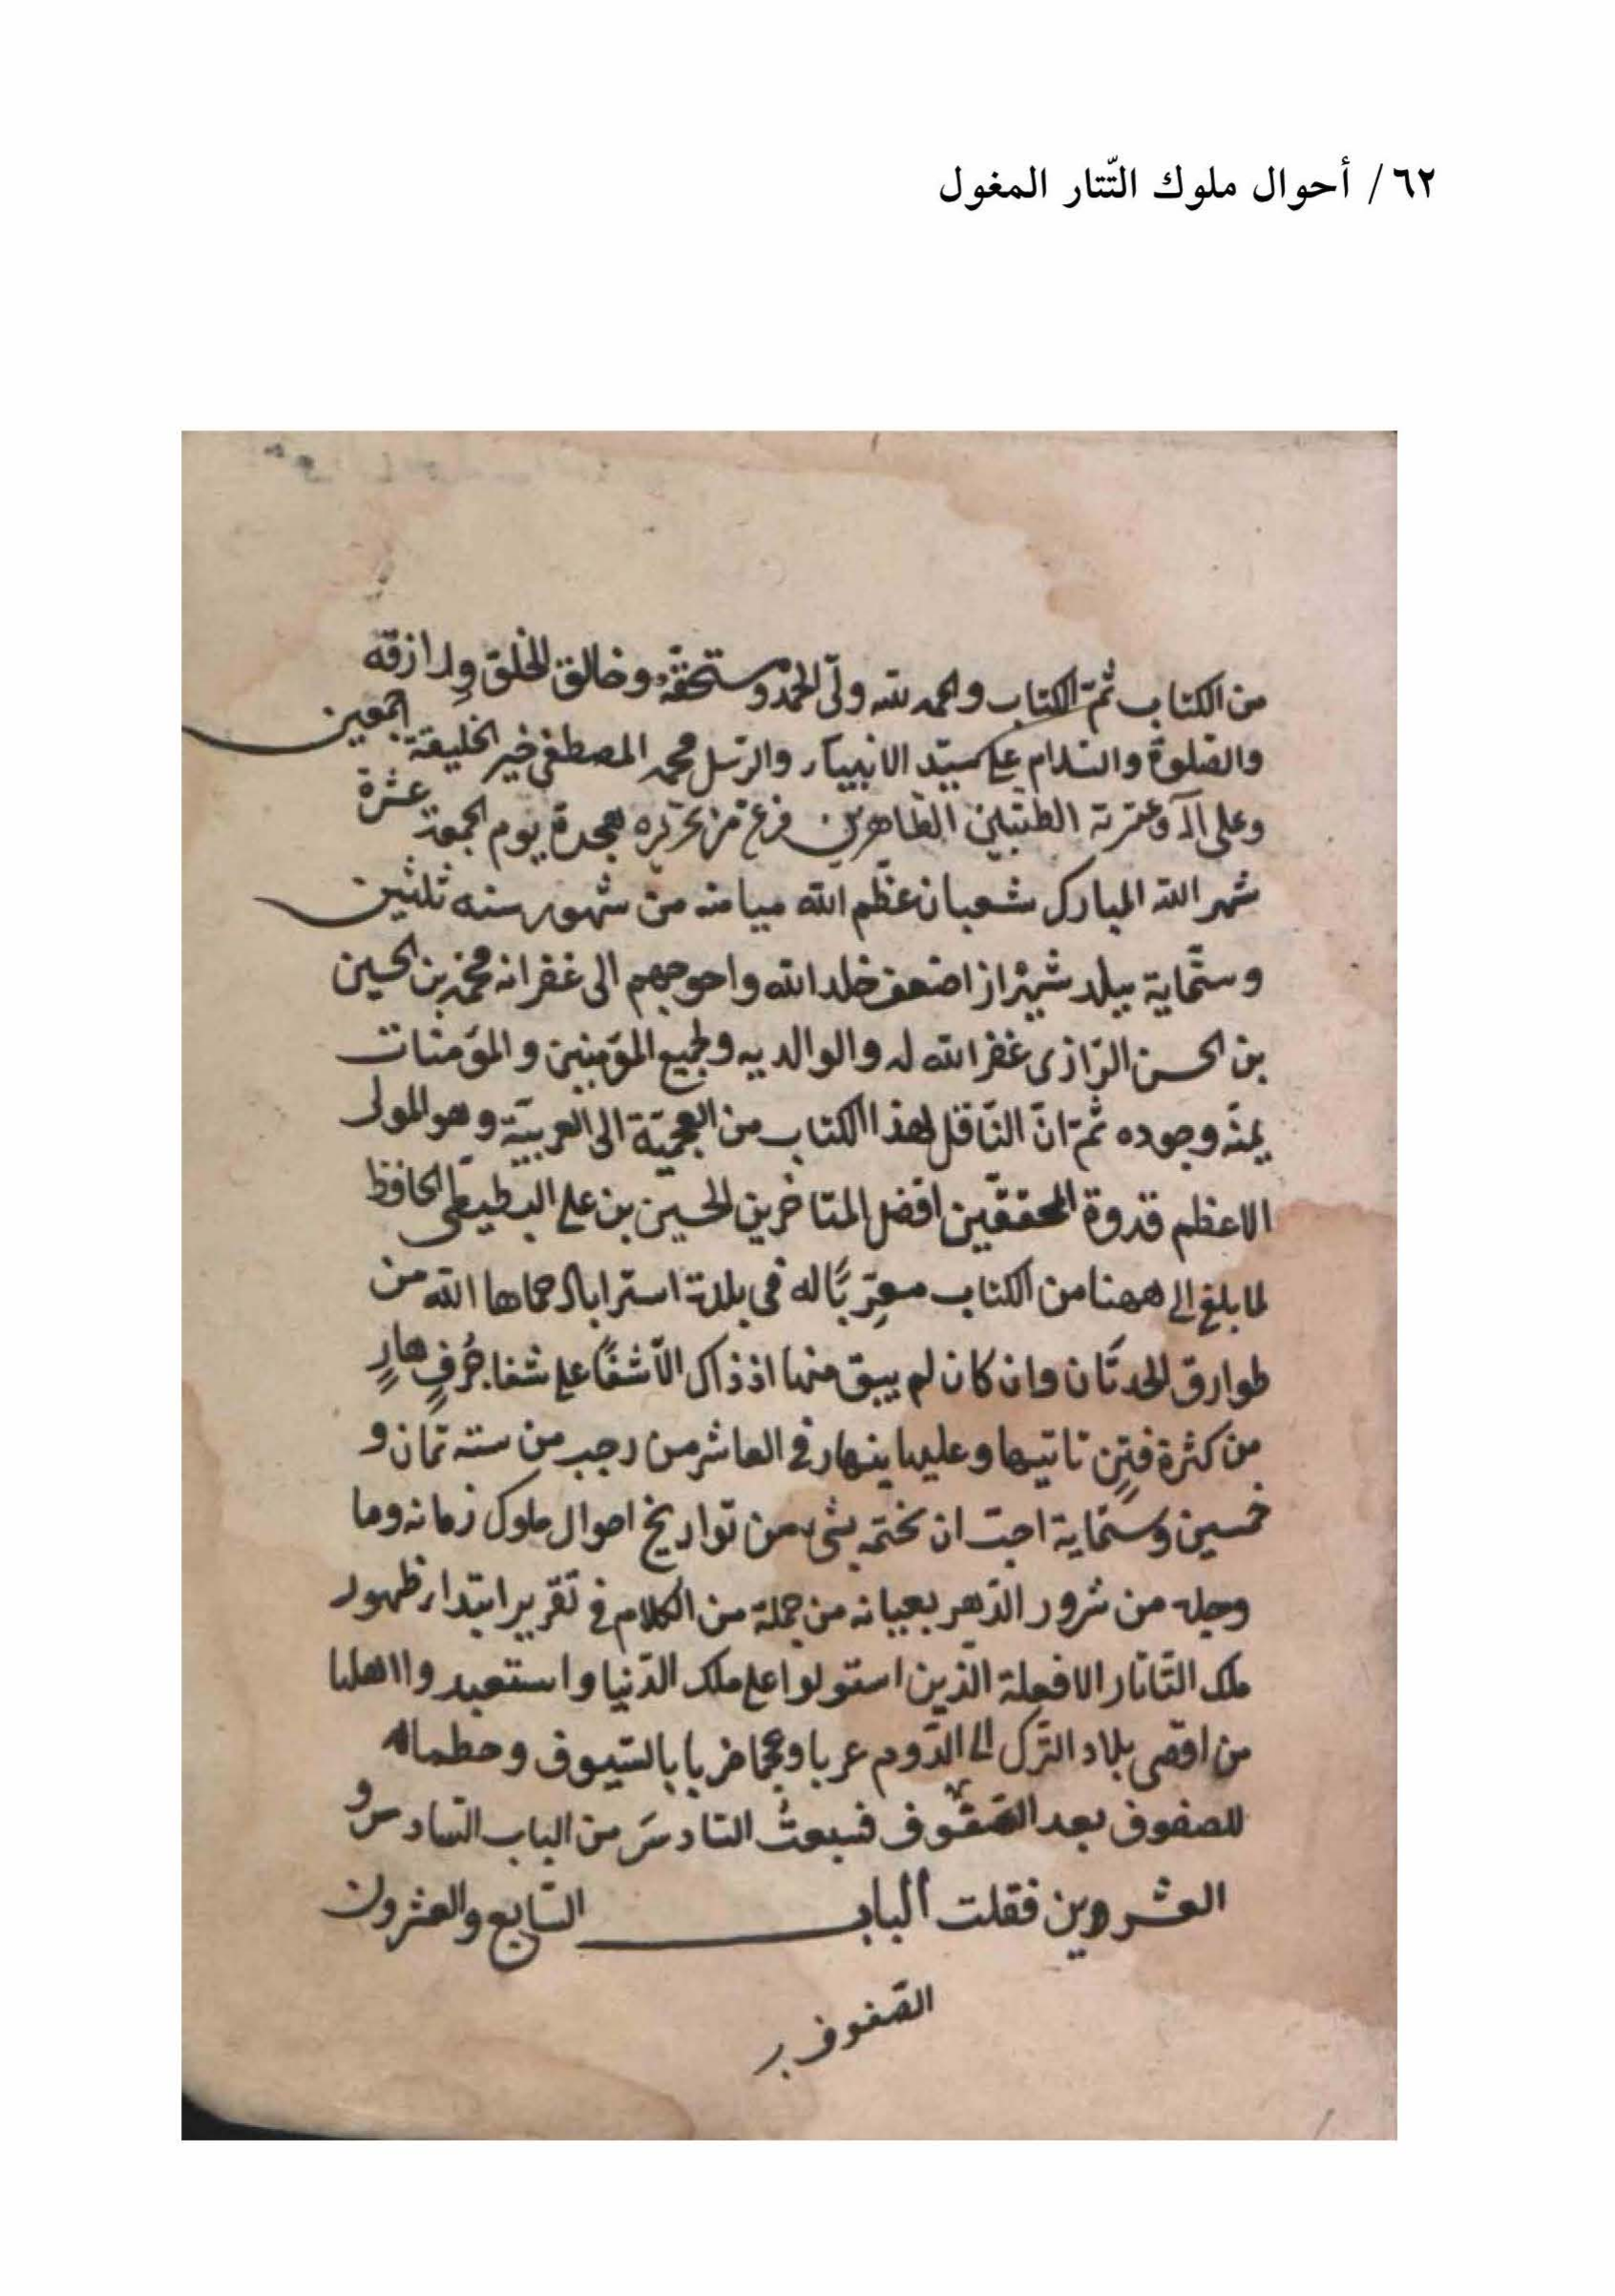 ٦٢/ أحوال ملوك التّتار المغول
من الكتاب ثمّ الكتاب والحمد لله ولىّ الحمد ومستحقّه وخالق الخلق ورازقه
والصّلوة والسّلام على سيّد الانبياء والرّسل محمد المصطفى خير الخليقة اجمعين
وعلى آله وعترته الطيّبين الطّاهرين فرغ من تحريره يوم الجمعة عشرة
شهر الله المبارك شعبان عظّم الله ميامنه من شهور سنه ثلثين
وستّماية ببلد شيراز اضعف خلد الله واحوجهم الى غفرانه محمّد بن الحسين
بن الحسن الرّازى غفر الله له والوالديه ولجميع المؤمنين والمؤمنات
بمنّه وجوده ثمّ انّ النّاقل لهذا الكتاب من العجميّة الى العربيّة وهو المولى
الاعظم قدوة المحققّين افضل المتاخرين الحسين بن على البطيطى الحافظ
لما بلغ الى ههنا من الكتاب معرّبًا له فى بلدة استراباد حماها الله من
طوارق الحدثان وان كان لم يبق منها اذ ذاك الّا شفًا على شفا جُرفٍ هارٍ
من كثرة فتنٍ تاتيها وعليها ينهار فى العاشر من رجب من سنه ثمان و
خمسين وستماية احبّ ان يختمه بشىء من تواريخ احوال ملوك زمانه وما
وجله من شرور الدّهر بعيانه من جملة من الكلام فى تقرير ابتداء ظهور
ملك التّاتار الافجلة الذين استولوا على ملك الدّنيا واستعبدوا اهلها
من اقصى بلاد التّرك الى الرّوم عربا وعجما ضربا بالسّيوف وحطما
للصفوف بعد الصّفوف فتبعتُ السّادسَ من الباب السّادس و
العشروين فقلت الباب السّابع والعشرون
الصّفوف